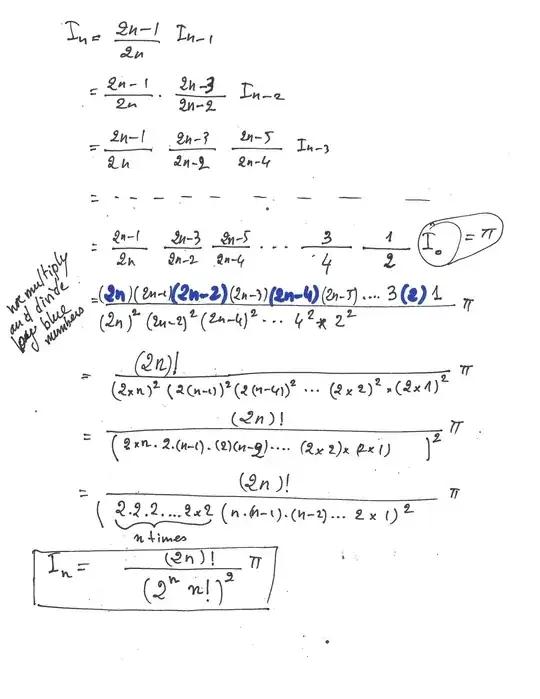 Iₙ = (2n-1)/(2n) Iₙ₋₁
= (2n-1)/(2n) · (2n-3)/(2n-2) Iₙ₋₂
= (2n-1)/(2n) (2n-3)/(2n-2) (2n-5)/(2n-4) Iₙ₋₃
= - - - - - - - - -
= (2n-1)/(2n) (2n-3)/(2n-2) (2n-5)/(2n-4) ... 3/4 1/2 I₀ = π
we multiply
and divide
by blue
numbers
= (2n)(2n-1)(2n-2)(2n-3)(2n-4)(2n-5) .... 3 (2) 1 / (2n)² (2n-2)² (2n-4)² ... 4² * 2² π
= (2n)! / (2×n)² (2(n-1))² (2(n-4))² ... (2×2)² × (2×1)² π
= (2n)! / (2×n · 2·(n-1) · (2)(n-2) .... (2×2) × (2×1))² π
= (2n)! / ( 2.2.2....2×2 (n·(n-1)·(n-2)... 2 × 1)² π
n times
Iₙ = (2n)! / (2ⁿ n!)² π